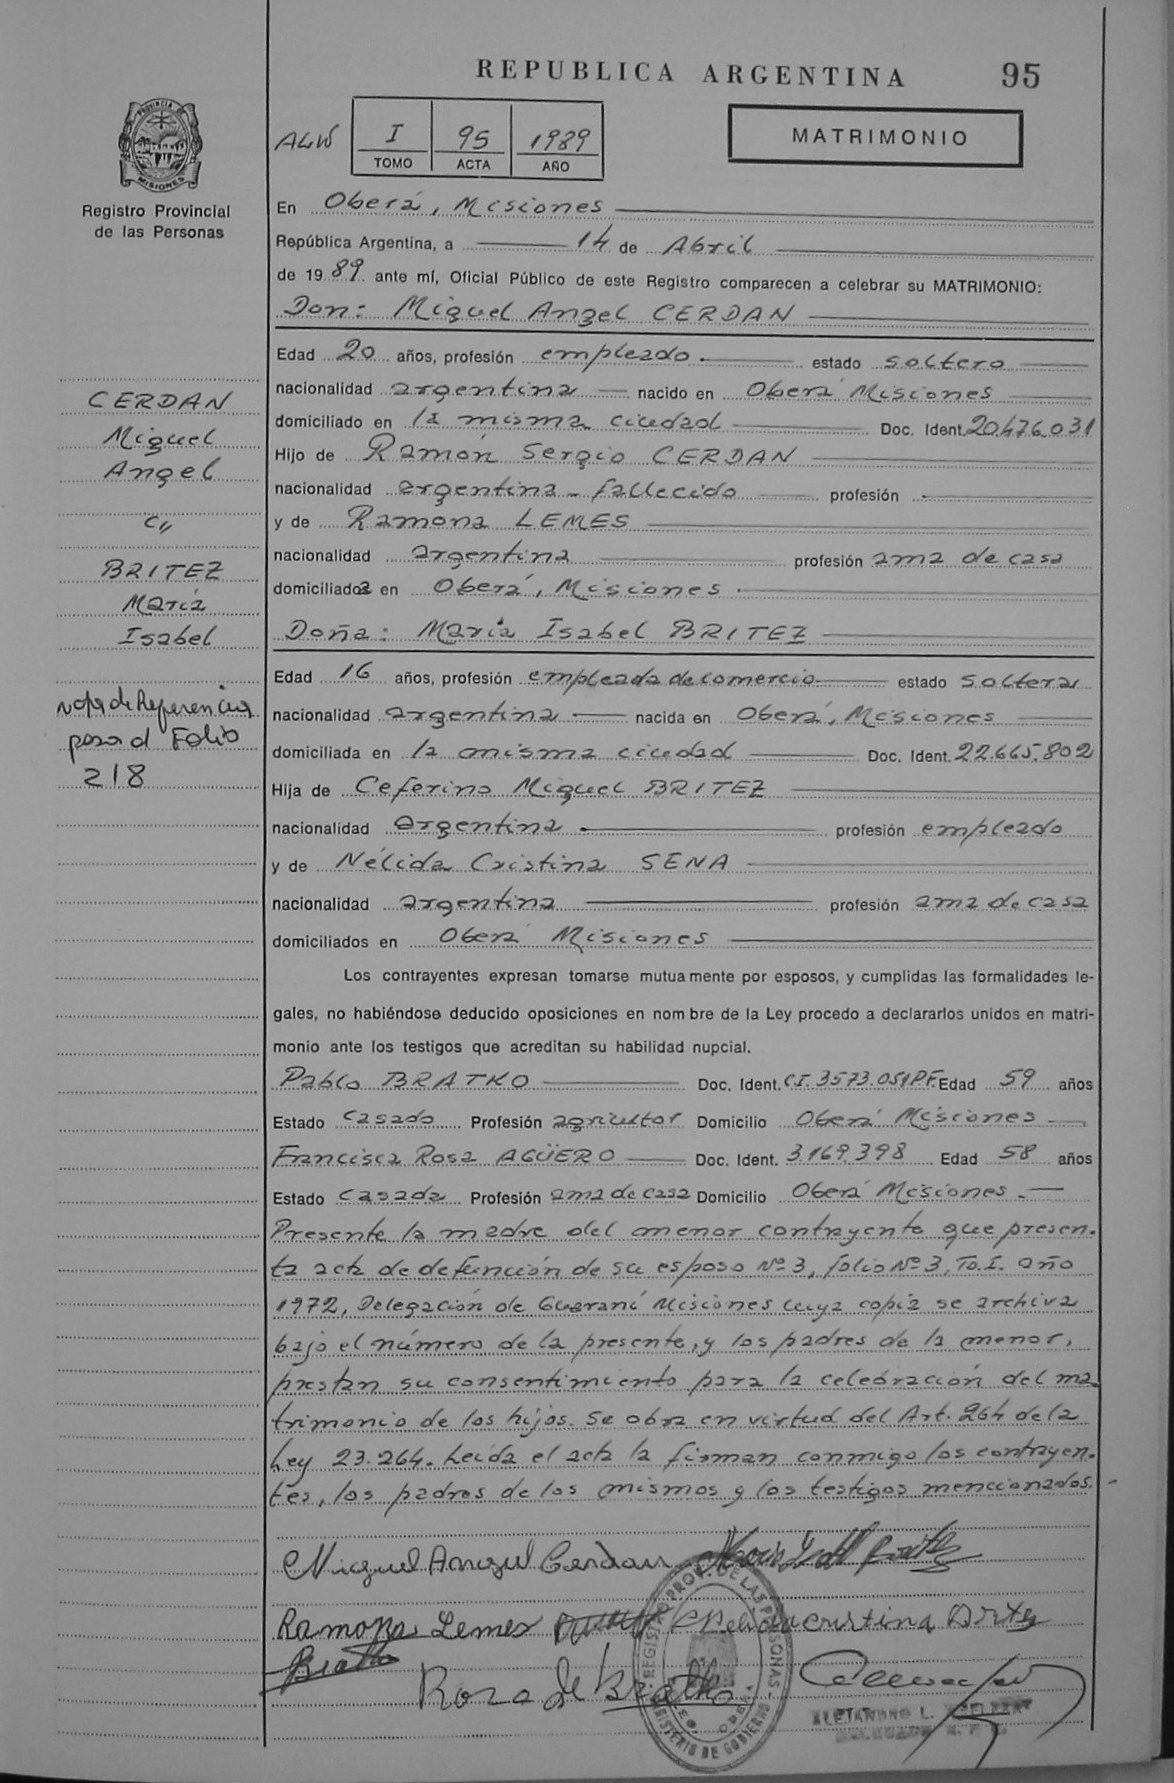 REPUBLICA ARGENTINA 95
PROVINCIA DE
MISIONES
Registro Provincial
de las Personas
I 95 1989
TOMO ACTA AÑO
MATRIMONIO
En Oberá, Misiones
República Argentina, a 14 de Abril
de 1989 ante mí, Oficial Público de este Registro comparecen a celebrar su MATRIMONIO:
Don: Miguel Angel CERDAN
Edad 20 años, profesión empleado. estado soltero
nacionalidad argentina nacido en Oberá Misiones
domiciliado en la misma ciudad Doc. Ident. 20.476.031
Hijo de Ramón Sergio CERDAN
nacionalidad argentina - fallecido profesión
y de Ramona LEMES
nacionalidad argentina profesión ama de casa
domiciliada en Oberá, Misiones.
Doña: María Isabel BRITEZ
Edad 16 años, profesión empleada de comercio estado soltera
nacionalidad argentina nacida en Oberá, Misiones
domiciliada en la misma ciudad Doc. Ident. 22.665.802
Hija de Ceferino Miguel BRITEZ
nacionalidad argentina. profesión empleado
y de Nélida Cristina SENA
nacionalidad argentina profesión ama de casa
domiciliados en Oberá Misiones
Los contrayentes expresan tomarse mutuamente por esposos, y cumplidas las formalidades le-
gales, no habiéndose deducido oposiciones en nombre de la Ley procedo a declararlos unidos en matri-
monio ante los testigos que acreditan su habilidad nupcial.
Pablo BRATKO Doc. Ident. CI. 3573.051 P.F. Edad 59 años
Estado casado Profesión agricultor Domicilio Oberá Misiones
Francisca Rosa AGÜERO Doc. Ident. 3.169.398 Edad 58 años
Estado casada Profesión ama de casa Domicilio Oberá Misiones.
Presente la madre del menor contrayente que presen-
ta acta de defunción de su esposo Nº 3, folio Nº 3, To. I. año
1972, Delegación de Guaraní Misiones cuya copia se archiva
bajo el número de la presente, y los padres de la menor,
prestan su consentimiento para la celebración del ma
trimonio de los hijos. Se obra en virtud del Art. 264 de la
Ley 23.264. Leída el acta la firman conmigo los contrayen-
tes, los padres de los mismos y los testigos mencionados.
CERDAN
Miguel
Angel
c/
BRITEZ
María
Isabel
nota de Referencia
pasa al Folio
218
Miguel Angel Cerdan
Ramona Lemes Nelida cristina
Bratko Rosa de Bratko
REGISTRO PROV. DE LAS PERSONAS
MINISTERIO DE GOBIERNO
ALEJANDRO L.